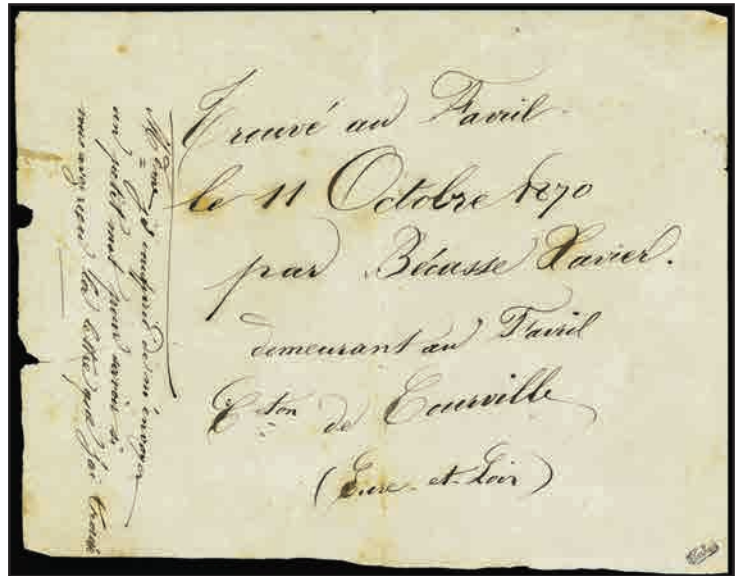 Trouvé au Favril
le 11 Octobre 1870
par Bécasse Xavier.
demeurant au Favril
Cton de Courville
(Eure-et-Loir)
de m'envoyer
un petit mot pour savoir si
vous avez reçu la lettre que j'ai trouvé